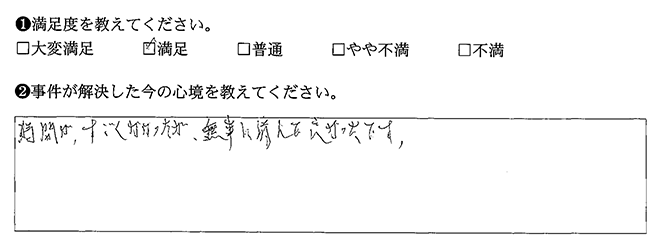 ❶満足度を教えてください。
□大変満足 ☑満足 □普通 □やや不満 □不満
❷事件が解決した今の心境を教えてください。
時間が、すごくかかったが、無事に済んで良かったです。